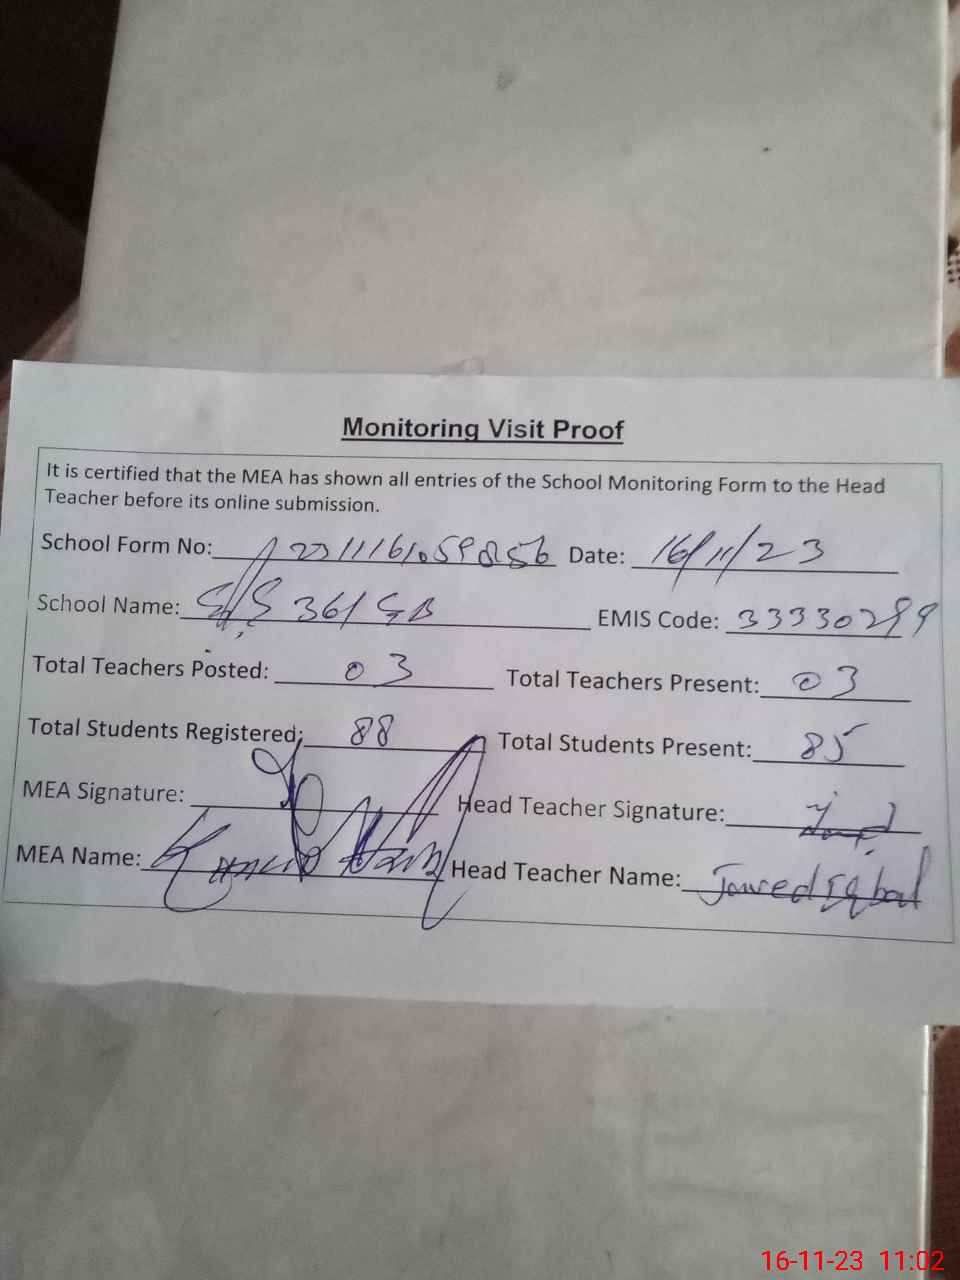 Monitoring Visit Proof
It is certified that the MEA has shown all entries of the School Monitoring Form to the Head
Teacher before its online submission.
School Form No: Date: 16/11/23
School Name: 361 GB EMIS Code: 33330299
Total Teachers Posted: 03 Total Teachers Present: 03
Total Students Registered: 88 Total Students Present: 85
MEA Signature: Head Teacher Signature:
MEA Name: Head Teacher Name: Javed Iqbal
16-11-23 11:02